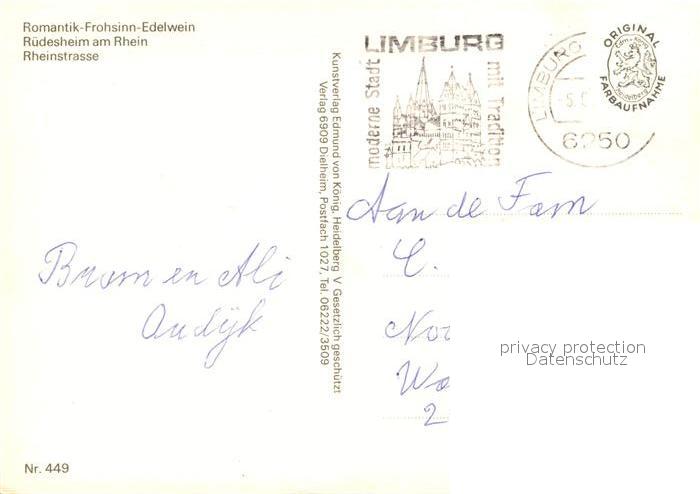 Romantik-Frohsinn-Edelwein
Rüdesheim am Rhein
Rheinstrasse
LIMBURG
moderne Stadt
mit Tradition
LIMBURG
-5.
6250
ORIGINAL
Edm. von König
Heidelberg
FARBAUFNAHME
Kunstverlag Edmund von König, Heidelberg V Gesetzlich geschützt
Verlag 6909 Dielheim, Postfach 1027, Tel. 06222/3509
Bram en Ali
Andijk
Aan de Fam
C.
Noo
Wa
2
privacy protection
Datenschutz
Nr. 449